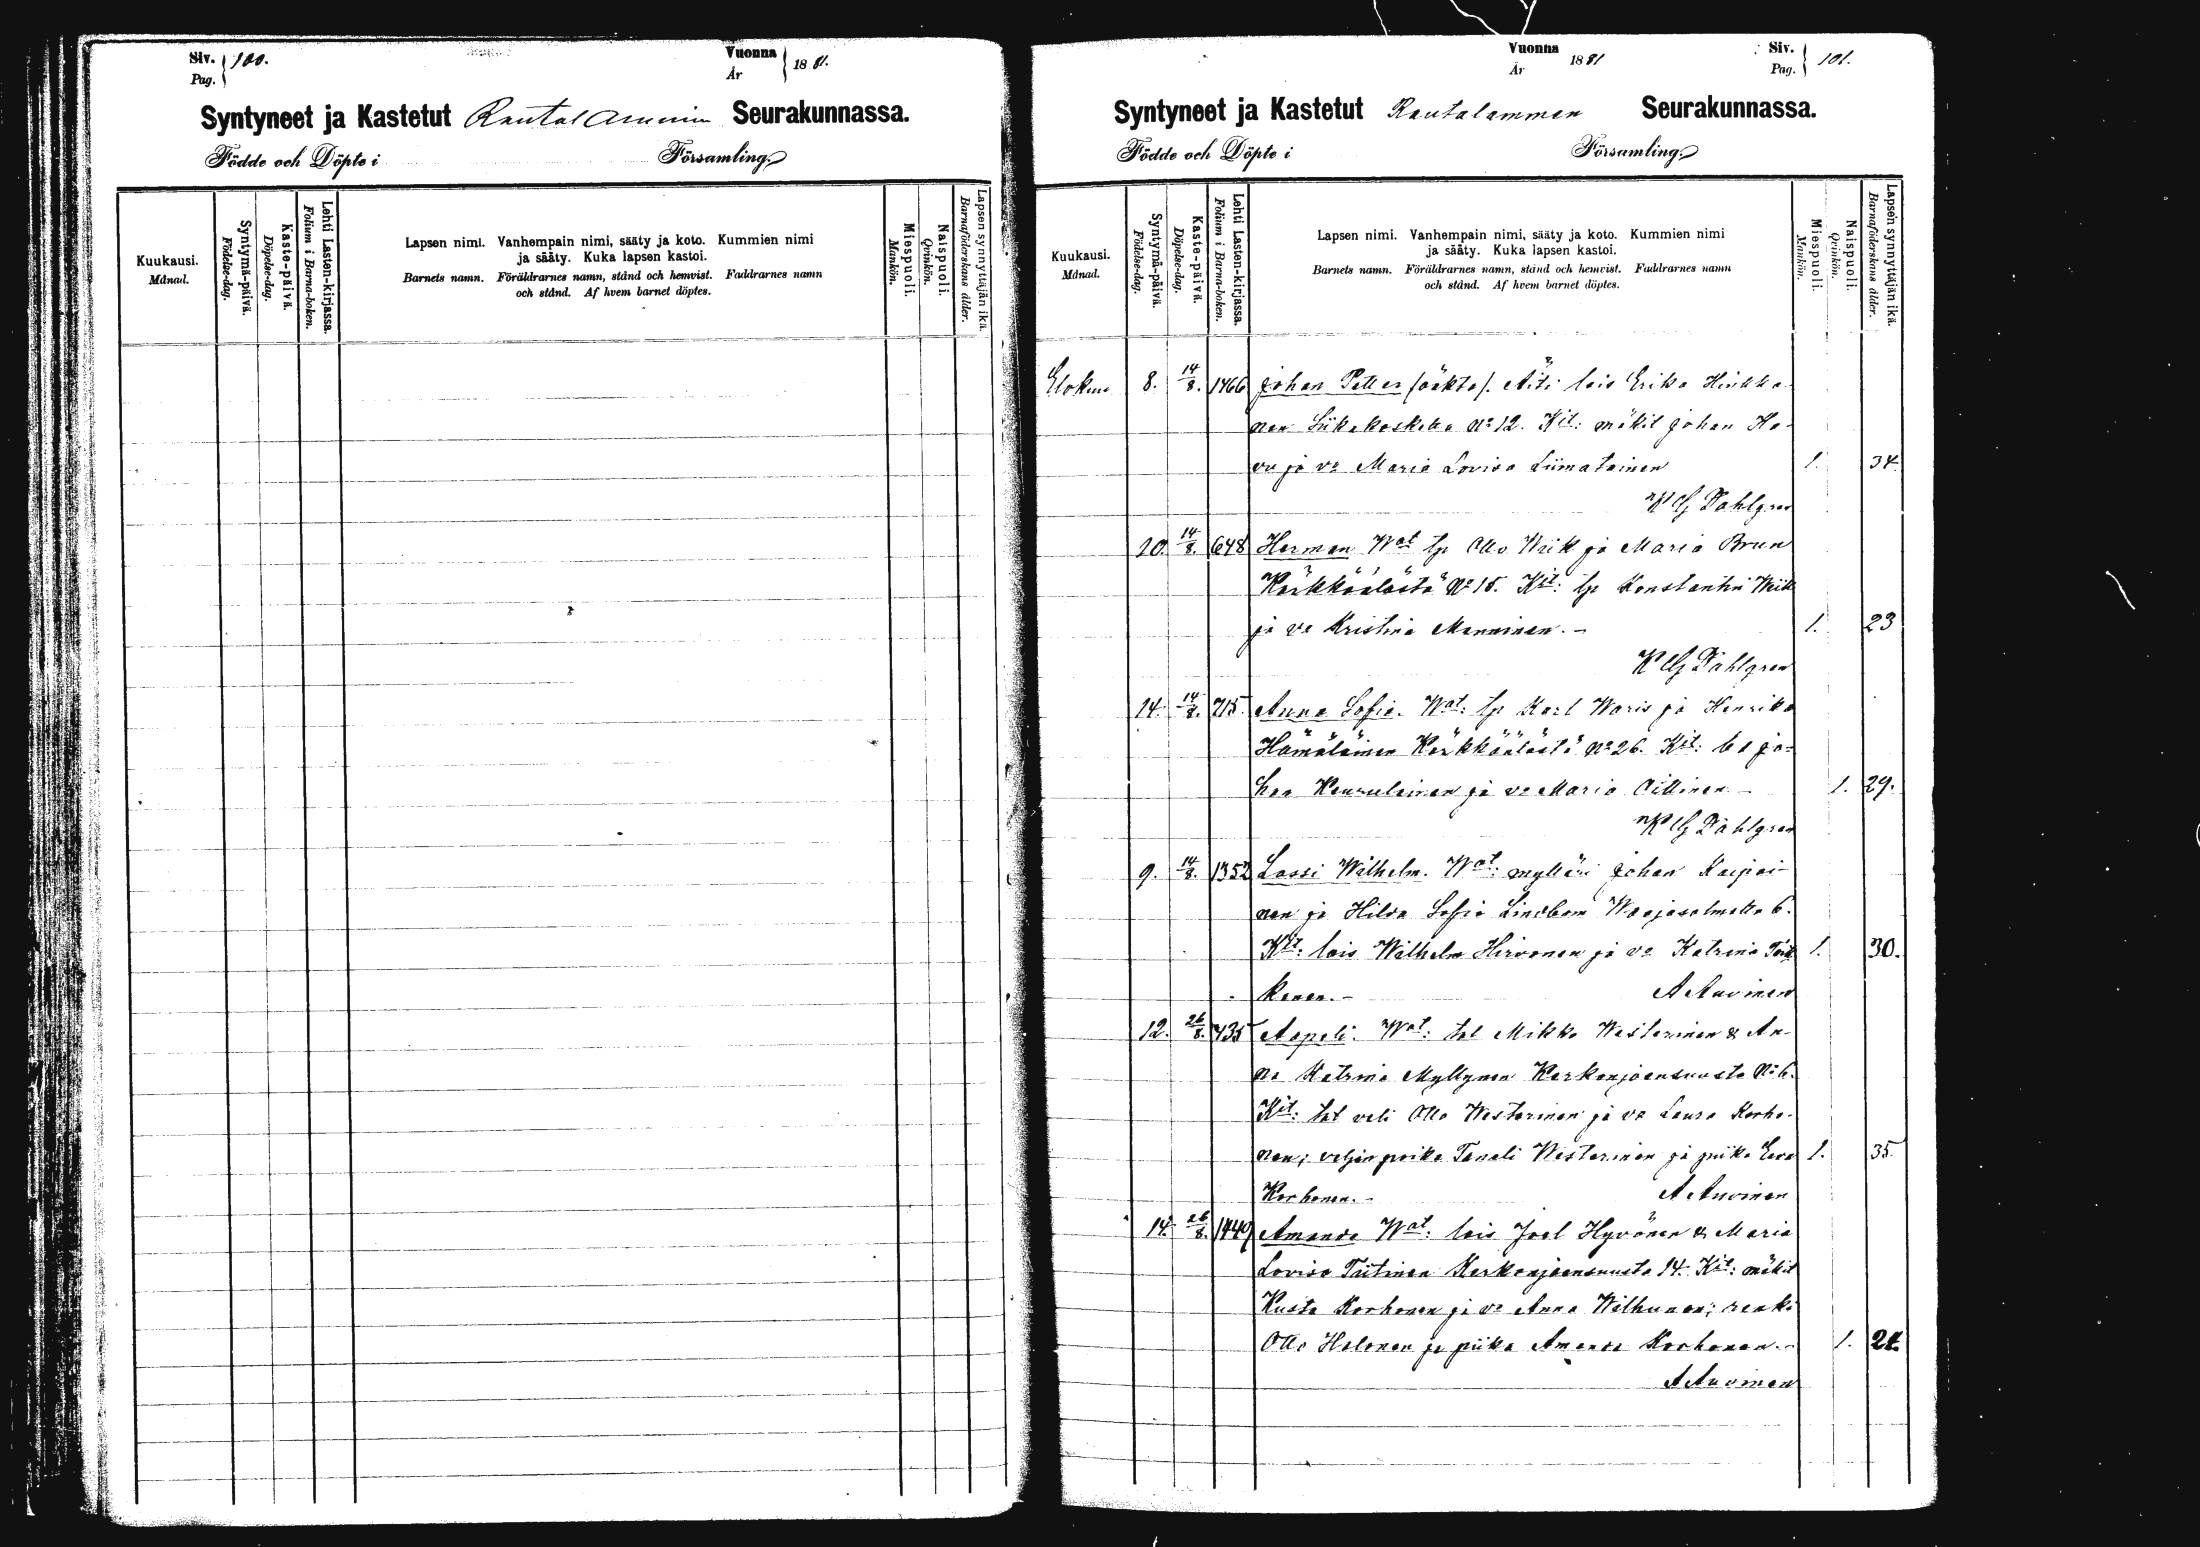 Siv. Pag. 100.
Vuonna År 1881.
Syntyneet ja Kastetut Rautalammin Seurakunnassa.
Födde och Döpte i Församling.
Kuukausi. Månad.
Syntymä-päivä. Födelse-dag.
Kaste-päivä. Döpelse-dag.
Lehti Lasten-kirjassa. Folium i Barna-boken.
Lapsen nimi. Vanhempain nimi, sääty ja koto. Kummien nimi
ja sääty. Kuka lapsen kastoi.
Barnets namn. Föräldrarnes namn, stånd och hemvist. Faddrarnes namn
och stånd. Af hvem barnet döptes.
Miespuoli. Mankön.
Naispuoli. Qvinkön.
Lapsen synnyttäjän ikä. Barnaföderskans ålder.
Vuonna År 1881
Siv. Pag. 101.
Syntyneet ja Kastetut Rautalammen Seurakunnassa.
Födde och Döpte i Församling.
Kuukausi. Månad.
Syntymä-päivä. Födelse-dag.
Kaste-päivä. Döpelse-dag.
Lehti Lasten-kirjassa. Folium i Barna-boken.
Lapsen nimi. Vanhempain nimi, sääty ja koto. Kummien nimi
ja sääty. Kuka lapsen kastoi.
Barnets namn. Föräldrarnes namn, stånd och hemvist. Faddrarnes namn
och stånd. Af hvem barnet döptes.
Miespuoli. Mankön.
Naispuoli. Qvinkön.
Lapsen synnyttäjän ikä. Barnaföderskans ålder.
Elokuu 8. 14/8. 1466 Johan Petter (oäkta). Äiti lois Erika Hinkka-
nen Siikakoskelta No 12. Kit: mäkit Johan Ha-
vu ja vo Maria Lovisa Liimatainen 1. 34
K G Dahlgren
10. 14/8. 648 Herman Wat lp Otto Wiik ja Maria Brun
Kerkkäälästä No 15. Kit: lp Konstantin Wiik
ja vo Kristina Manninen. – 1. 23
K G Dahlgren
14. 14/8. 715 Anna Sofia. Wat: lp Karl Waris ja Henrika
Hämäläinen Kerkkäälästä No 26. Kit: Jo=
han Kaurulainen ja vo Maria Oittinen – 1. 29.
K G Dahlgren
9. 14/8. 1352 Lassi Wilhelm. Wat: mylläri Johan Karjai-
nen ja Hilda Sofia Lindbom Waajasalmelta 6.
Kit: lois Wilhelm Hirvonen ja vo Katrina 1. 30.
kanen. – A Auvinen
12. 26/8. 735 Aapeli. Wat: tal Mikko Westerinen & An-
na Katrina Myllynen Kerkonjoensuusta No 6.
Kit: tal veli Otto Westerinen ja vo Laura Korho-
nen; veljen poika Taneli Westerinen ja piika Eeva 1. 35
Korhonen. – A Auvinen
14. 26/8. 1449 Amanda Wat: lois Joel Hyvönen & Maria
Lovisa Tiitinen Kerkonjoensuusta 14. Kit: mäkit
Kusta Korhonen ja vo Anna Wilhunen; renki
Otto Halonen ja piika Amanda Korhonen. – 1. 24.
A Auvinen